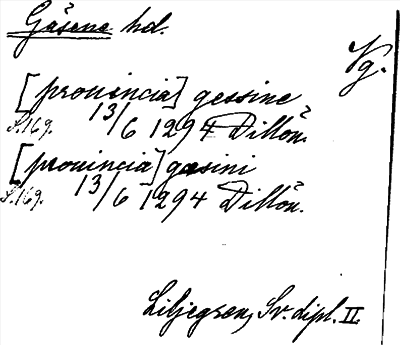 Gåsene hd.
Vg.
[prouincia] gessine
S.169. 13/6 1294 Dillön.
[prouincia] gæsini
S.169. 13/6 1294 Dillön.
Liljegren, Sv. dipl. II